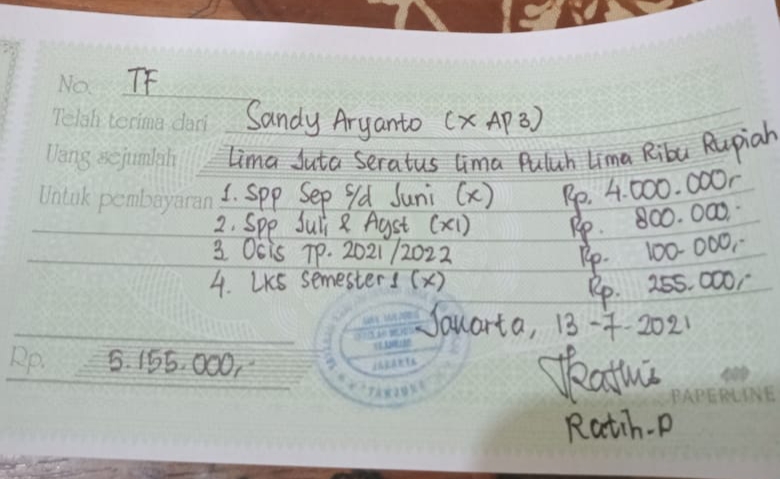 No. TF
Telah terima dari Sandy Aryanto (X AP 3)
Uang sejumlah Lima Juta Seratus Lima Puluh Lima Ribu Rupiah
Untuk pembayaran 1. Spp Sep s/d Juni (X) Rp. 4.000.000,-
2. Spp Juli & Agst (XI) Rp. 800.000,-
3. Osis TP. 2021/2022 Rp. 100.000,-
4. LKS Semester 1 (X) Rp. 255.000,-
Jakarta, 13-7-2021
Rp. 5.155.000,-
JAKARTA
PAPERLINE
Ratih.P